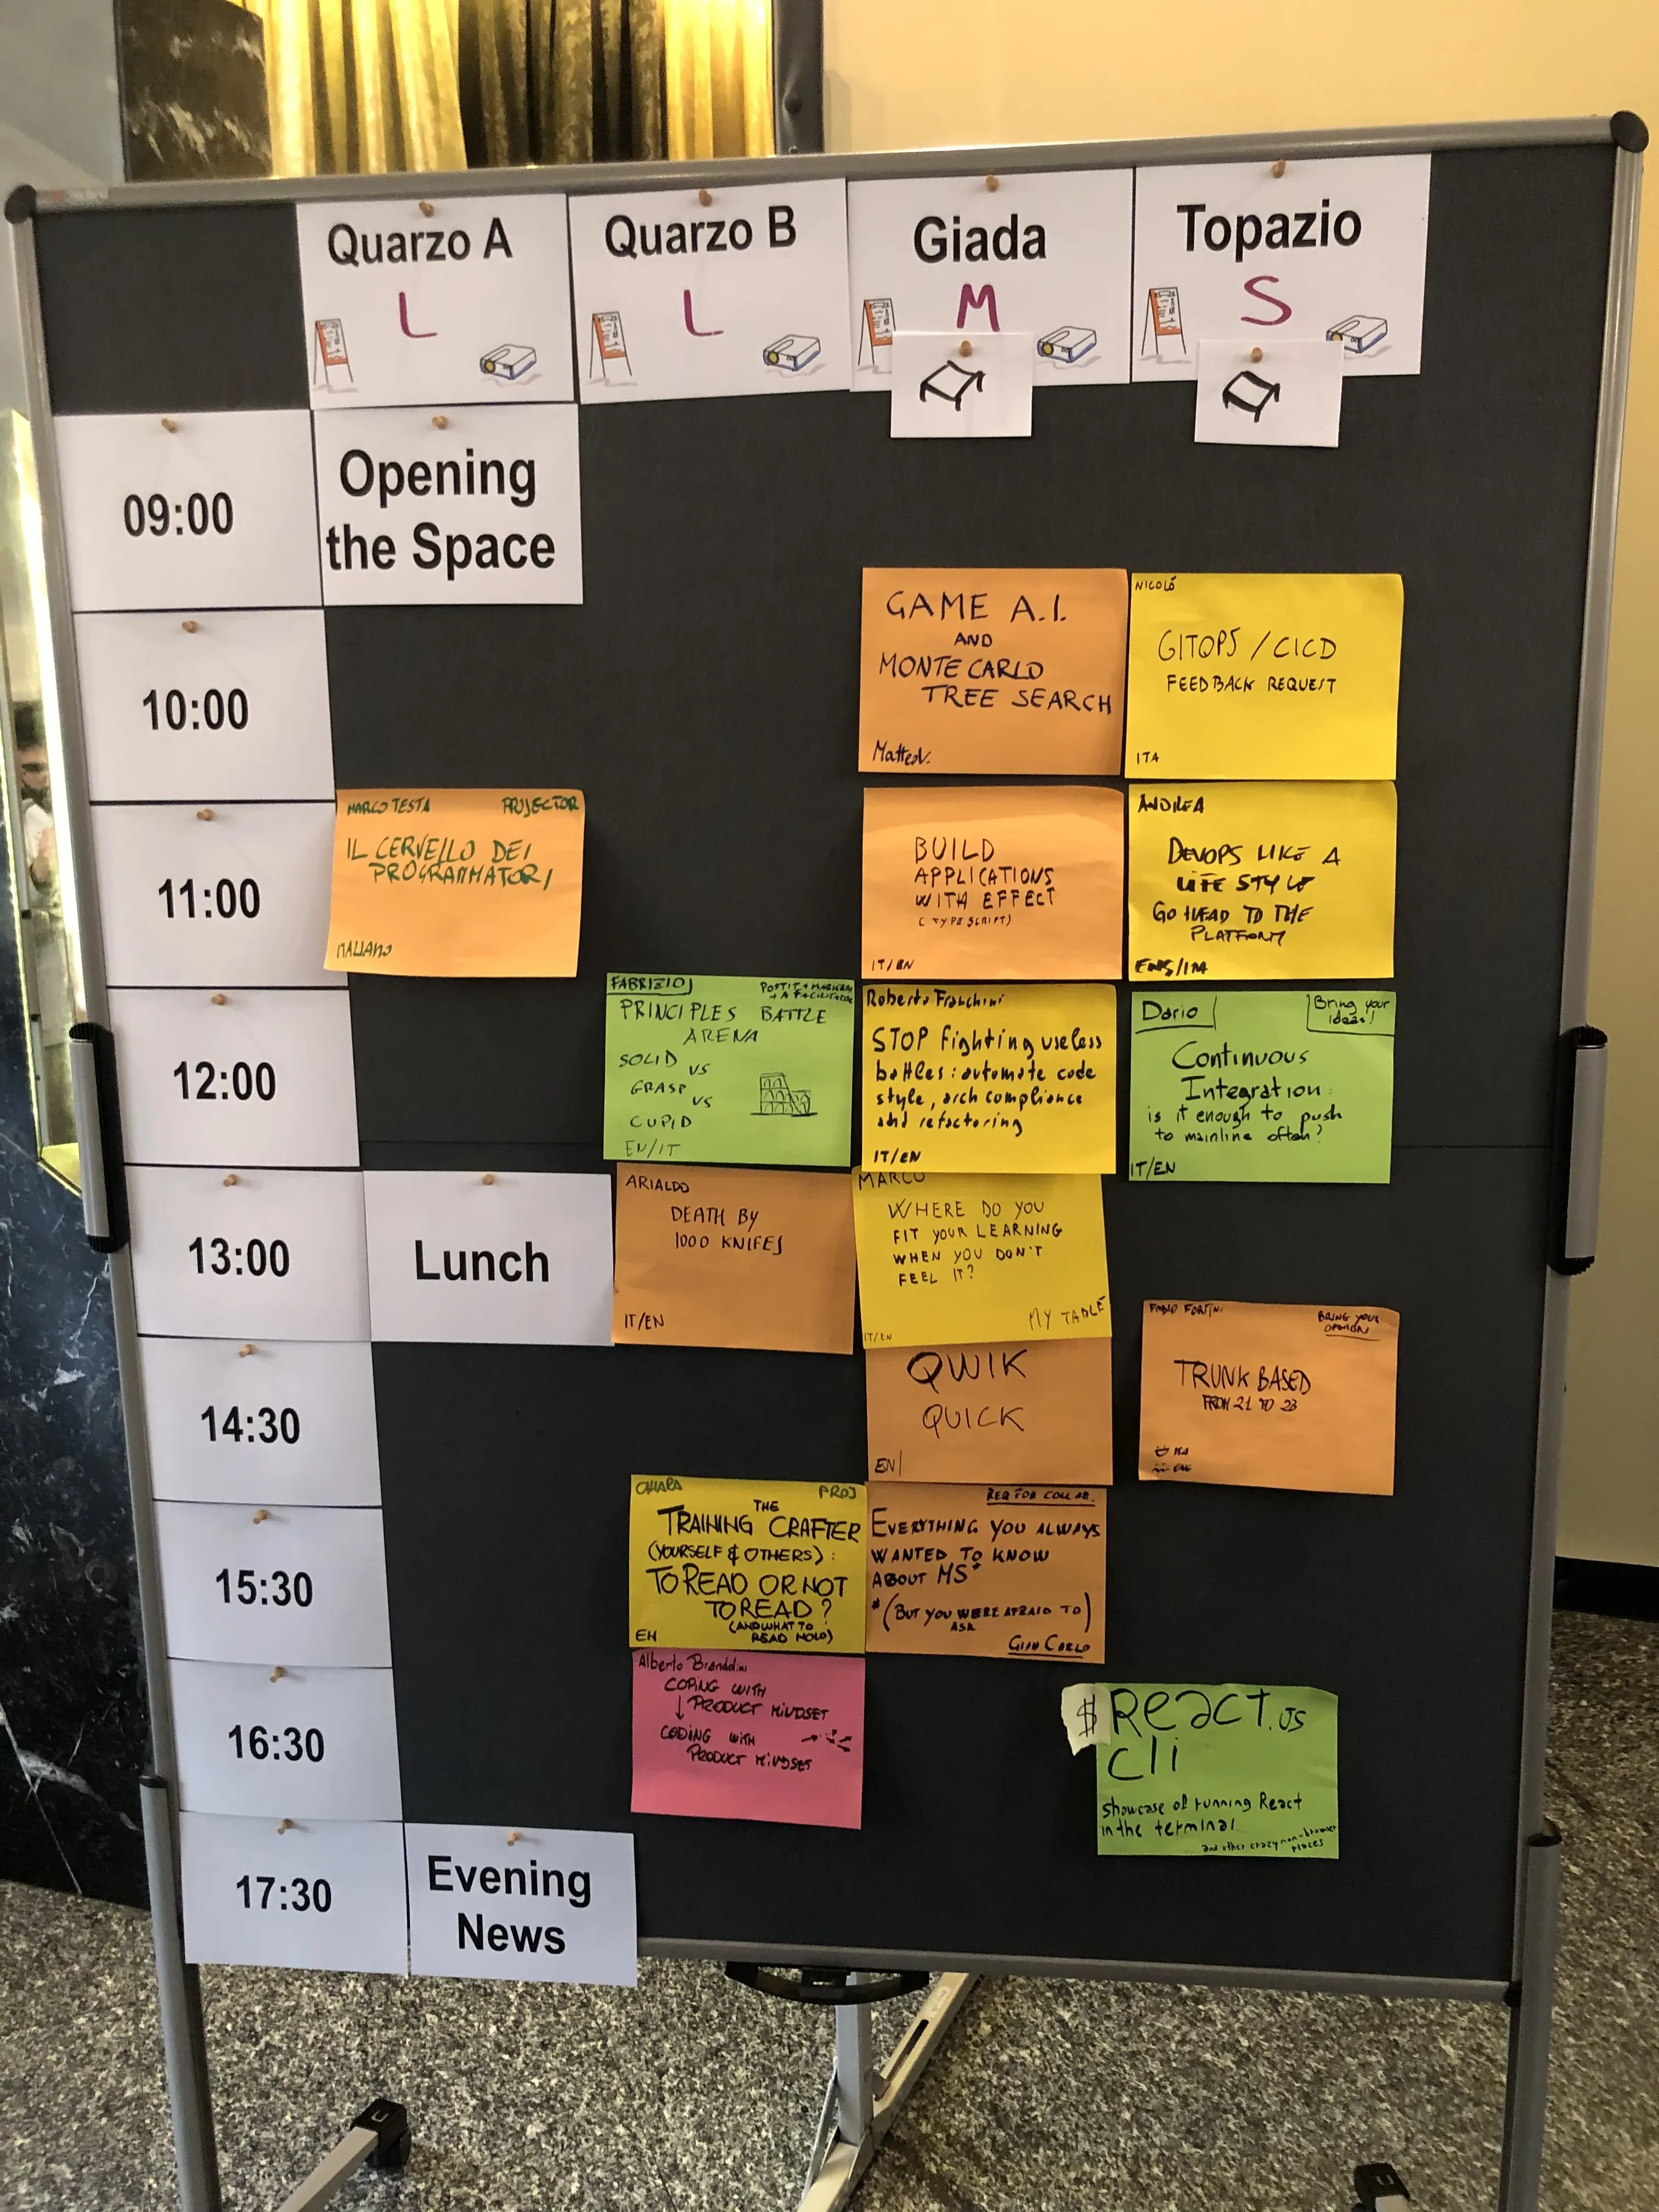 Quarzo A
L
Quarzo B
L
Giada
M
Topazio
S
09:00
Opening
the Space
10:00
GAME A.I.
AND
MONTE CARLO
TREE SEARCH
MatteoV.
NICOLÒ
GITOPS / CICD
FEEDBACK REQUEST
ITA
11:00
MARCO TESTA
PROJECTOR
IL CERVELLO DEI
PROGRAMMATORI
ITALIANO
BUILD
APPLICATIONS
WITH EFFECT
(TYPESCRIPT)
IT/EN
ANDREA
DEVOPS LIKE A
LIFE STYLE
GO HEAD TO THE
PLATFORM
ENG/ITA
12:00
FABRIZIO
POSTIT + MARKERS
+ A FACILITATOR
PRINCIPLES BATTLE
ARENA
SOLID
VS
GRASP
VS
CUPID
EN/IT
Roberto Franchini
STOP fighting useless
battles: automate code
style, arch compliance
and refactoring
IT/EN
Dario
Bring your
ideas!
Continuous
Integration:
is it enough to push
to mainline often?
IT/EN
13:00
Lunch
ARIALDO
DEATH BY
1000 KNIFES
IT/EN
MARCO
WHERE DO YOU
FIT YOUR LEARNING
WHEN YOU DON'T
FEEL IT?
MY TABLE
IT/EN
14:30
QWIK
QUICK
EN
FABIO FORTINI
BRING YOUR
OPINION
TRUNK BASED
FROM 21 TO 23
ITA
ENG
15:30
CHIARA
PROJ
THE
TRAINING CRAFTER
(YOURSELF & OTHERS):
TO READ OR NOT
TO READ?
(AND WHAT TO
READ NOW)
EN
REQ FOR COLLAB.
EVERYTHING YOU ALWAYS
WANTED TO KNOW
ABOUT MS*
*(BUT YOU WERE AFRAID TO)
ASK
GIAN CARLO
16:30
Alberto Brandolini
COPING WITH
PRODUCT MINDSET
CODING WITH
PRODUCT MINDSET
$ React.js
cli
showcase of running React
in the terminal
and other crazy non-browser
places
17:30
Evening
News